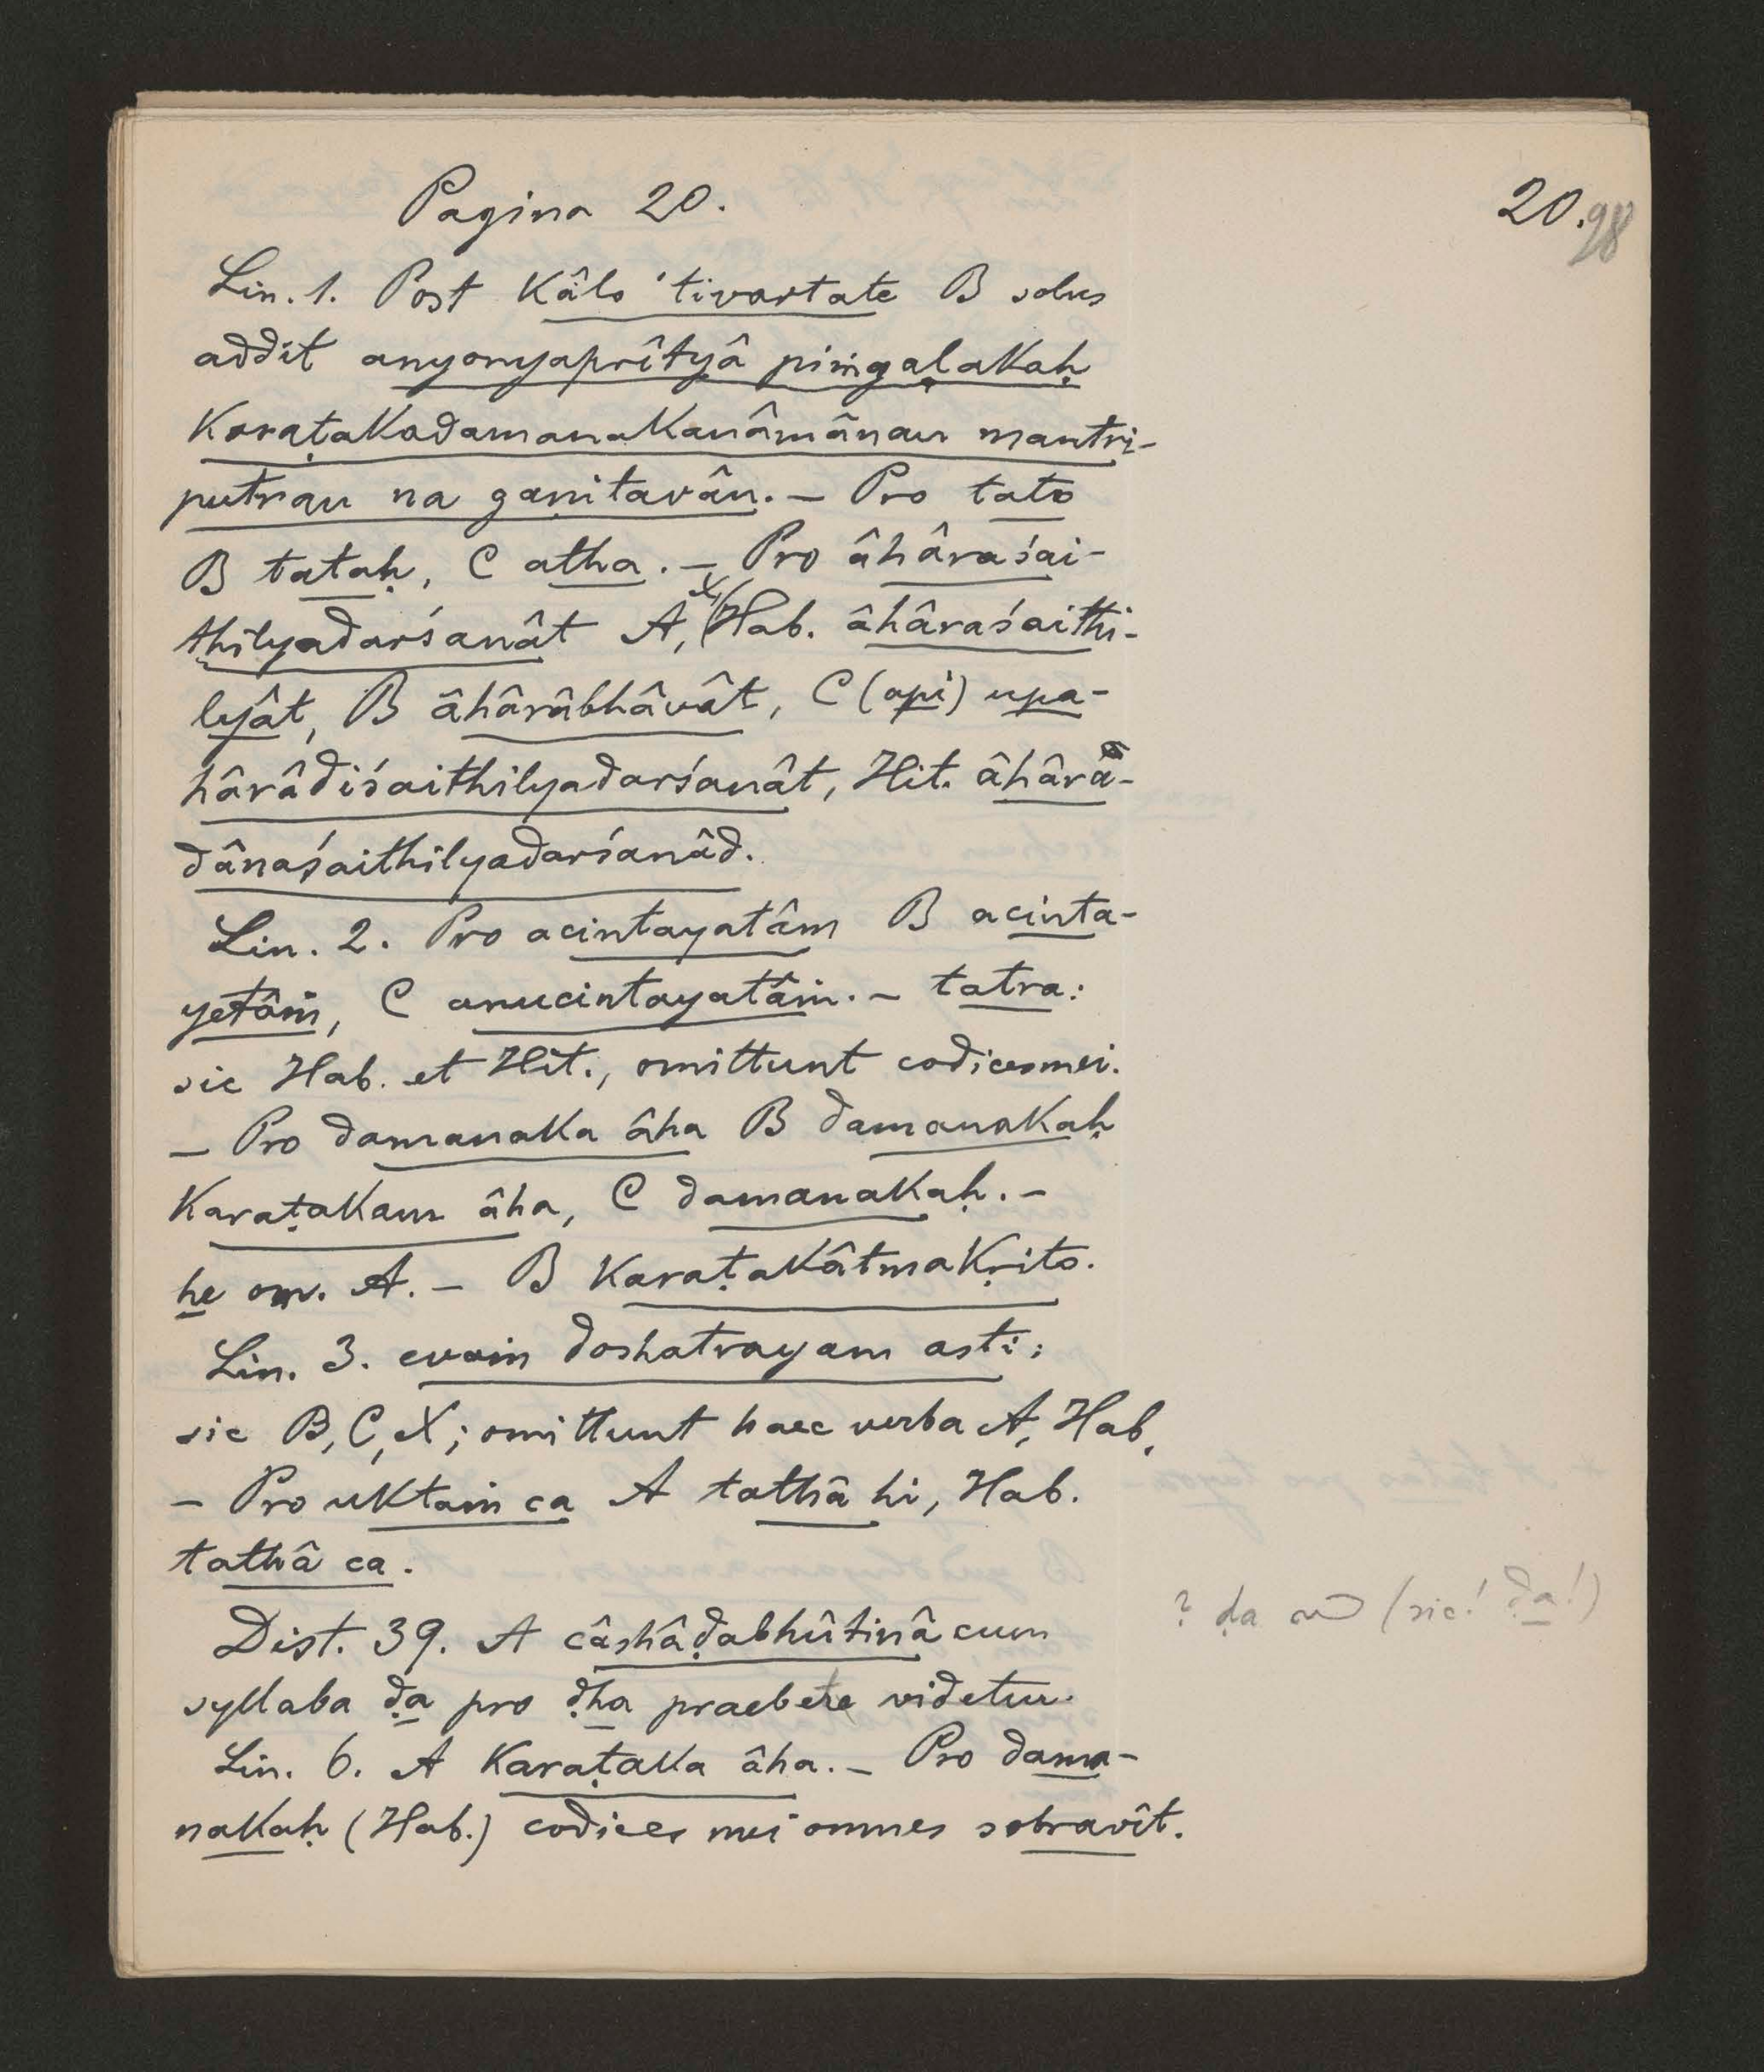 Pagina 20.
20. 98
Lin. 1. Post kâlo 'tivartate B solus
addit anyonyaprîtyâ piṁgaḷakaḥ
karaṭakadamanakanâmânau mantri-
putrau na gaṇitavân. — Pro tato
B tataḥ, C atha. — Pro âhâraśai-
thilyadarśanât A, X, Hab. âhâraśaithi-
lyât, B âhârâbhâvât, C (api) upa-
hârâdiśaithilyadarśanât, Hit. âhârâ-
dânaśaithilyadarśanâd.
Lin. 2. Pro acintayatâm B acinta-
yetâṁ, C anucintayatâṁ. — tatra:
sic Hab. et Hit., omittunt codices mei.
— Pro damanaka âha B damanakaḥ
karaṭakam âha, C damanakaḥ. —
he om. A. — B karaṭakâtmakṛito.
Lin. 3. evaṁ doshatrayam asti:
sic B, C, X; omittunt haec verba A, Hab.
— Pro uktaṁ ca A tathâ hi, Hab.
tathâ ca.
Dist. 39. A câshâḍabhûtinâ cum
syllaba ḍa pro ḍha praebere videtur.
? ḍa (sic! ḍa!)
Lin. 6. A karaṭaka âha. — Pro dama-
nakaḥ (Hab.) codices mei omnes sobravît.